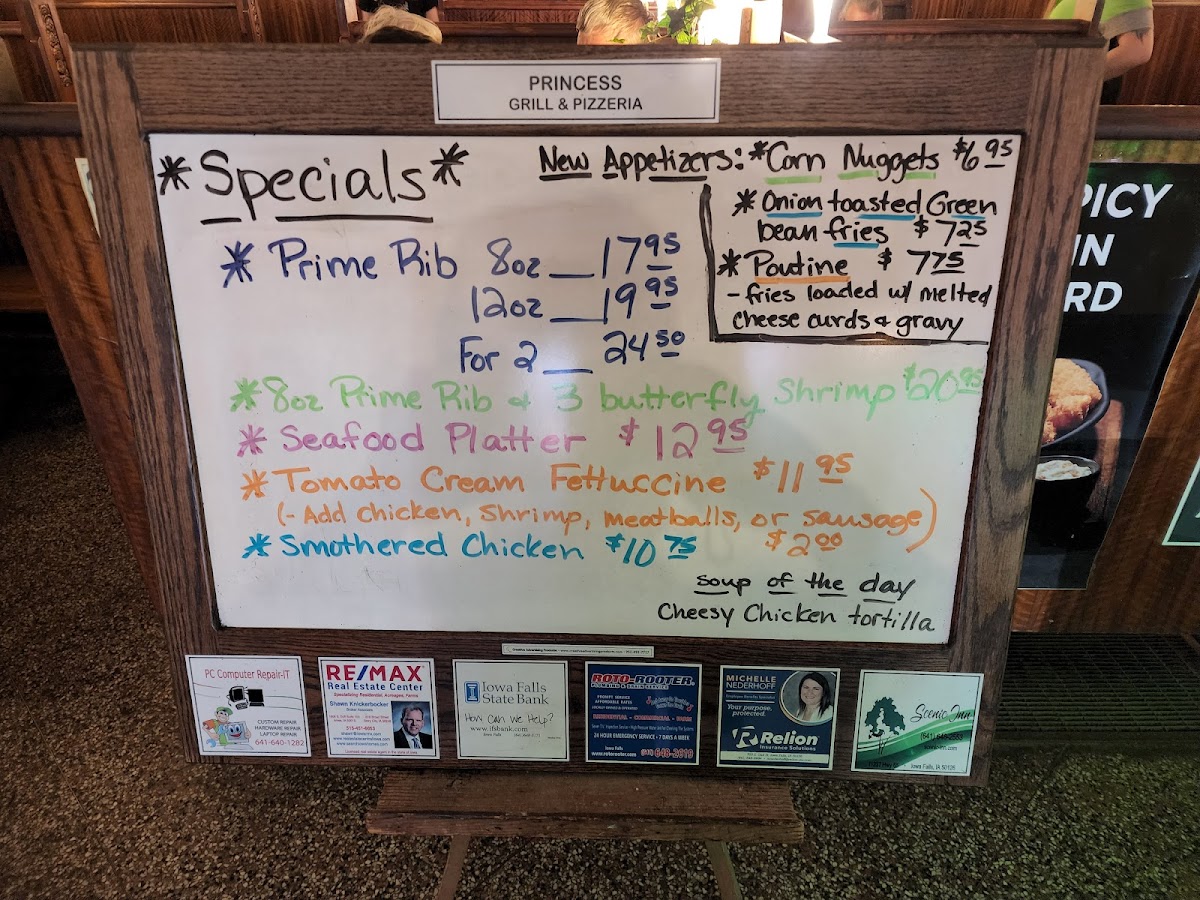 PRINCESS
GRILL & PIZZERIA
*Specials*
New Appetizers: *Corn Nuggets $6.95
* Onion toasted Green
bean fries $7.25
* Poutine $7.75
- fries loaded w/ melted
cheese curds & gravy
* Prime Rib 8oz __ 17.95
12oz __ 19.95
For 2 __ 24.50
*8oz Prime Rib & 3 butterfly Shrimp $20.95
* Seafood Platter $12.95
* Tomato Cream Fettuccine $11.95
(- Add chicken, shrimp, meatballs, or sausage)
$2.00
* Smothered Chicken $10.75
soup of the day
Cheesy Chicken tortilla
PICY
IN
RD
PC Computer Repair-IT
CUSTOM REPAIR
HARDWARE REPAIR
LAPTOP REPAIR
641-640-1282
RE/MAX
Real Estate Center
Specializing Residential, Acreages, Farms
Shawn Knickerbocker
Iowa Falls
State Bank
How Can we Help?
www.ifsbank.com
ROTO-ROOTER
PLUMBING & DRAIN SERVICE
PROMPT SERVICE
AFFORDABLE RATES
RESIDENTIAL - COMMERCIAL - FARM
24 HOUR EMERGENCY SERVICE - 7 DAYS A WEEK
Iowa Falls
www.rotorooter.com
648-2619
MICHELLE
NEDERHOFF
Your purpose,
protected.
Relion
Insurance Solutions
Scenic Inn
scenic-inn.com
Iowa Falls, IA 50126